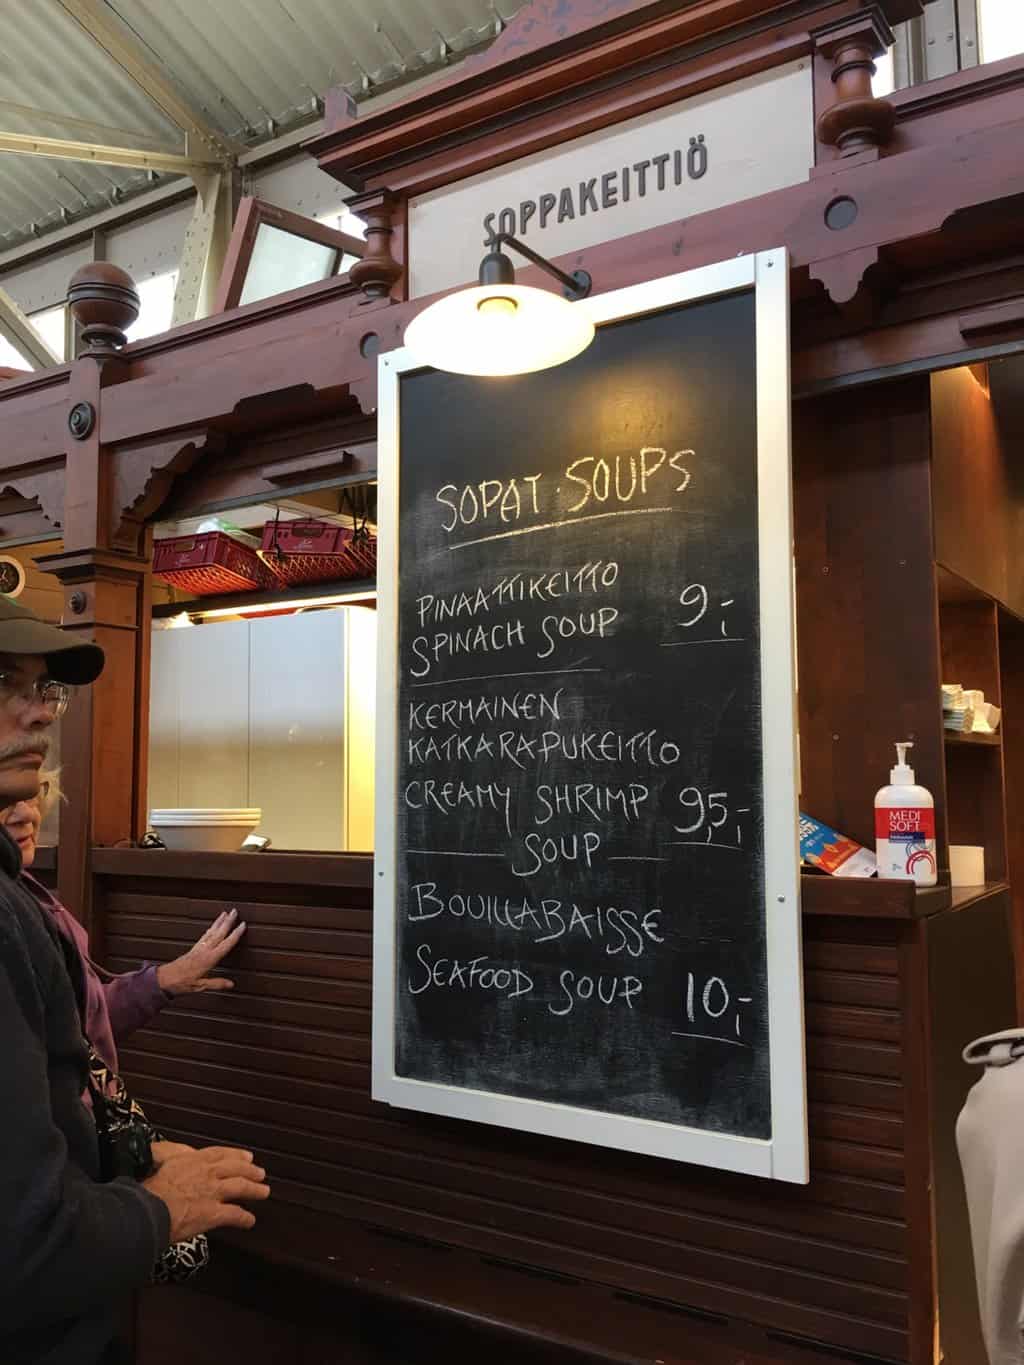 SOPPAKEITTIÖ
SOPAT · SOUPS
PINAATTIKEITTO
SPINACH SOUP 9,-
KERMAINEN
KATKARAPUKEITTO
CREAMY SHRIMP 9,5,-
SOUP
BOUILLABAISSE
SEAFOOD SOUP 10,-
MEDI
SOFT